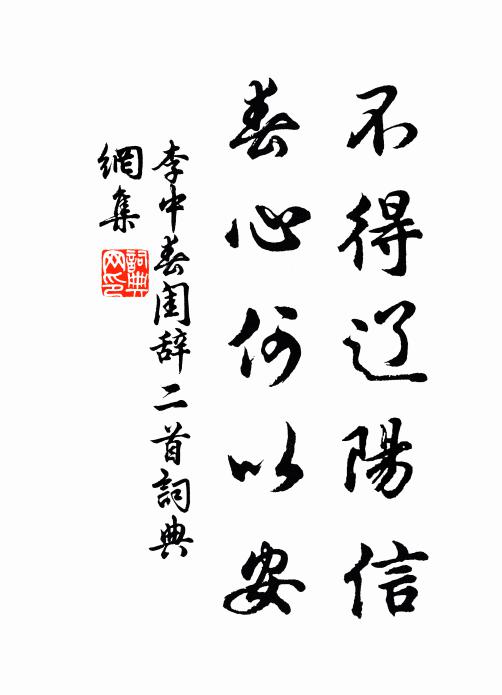 不得辽陽信
春心何以安
李中春闺辞二首詞典
網集
詞典
网印